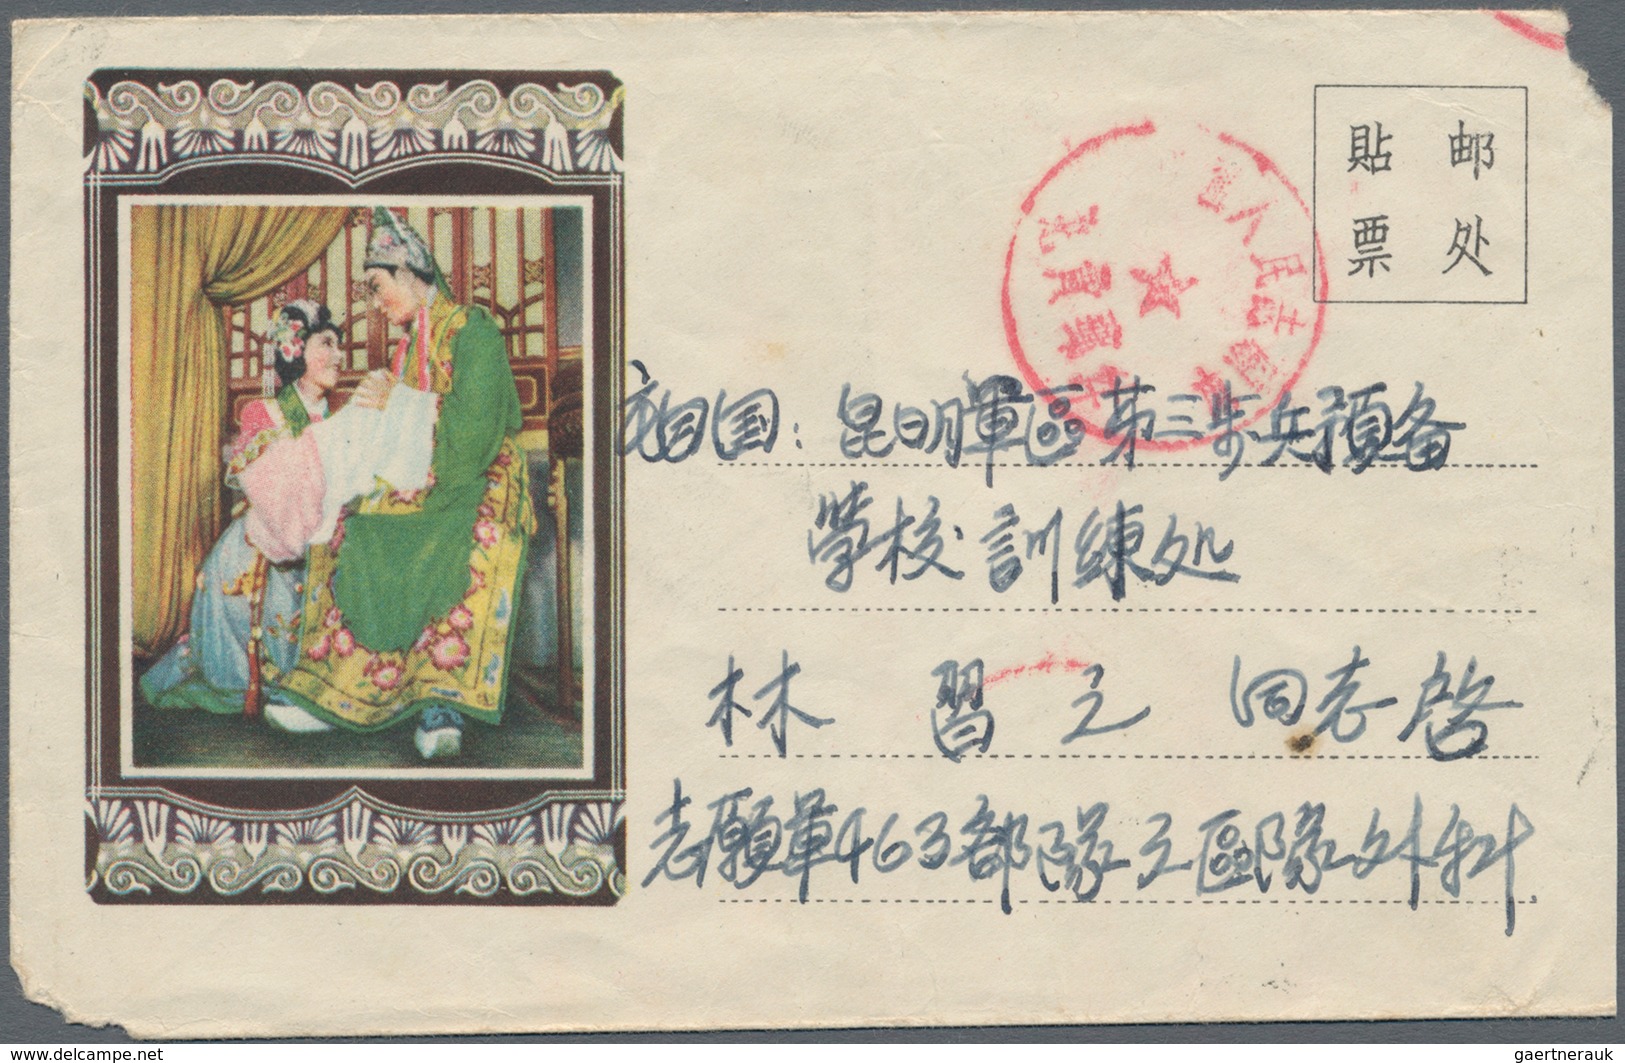 邮处
貼票
人民志願軍
祖国：昆明軍區第三步兵預备
學校訓練处
林習之同志啓
志願軍463部隊立區部隊外科
www.delcampe.net
gaertnerauk